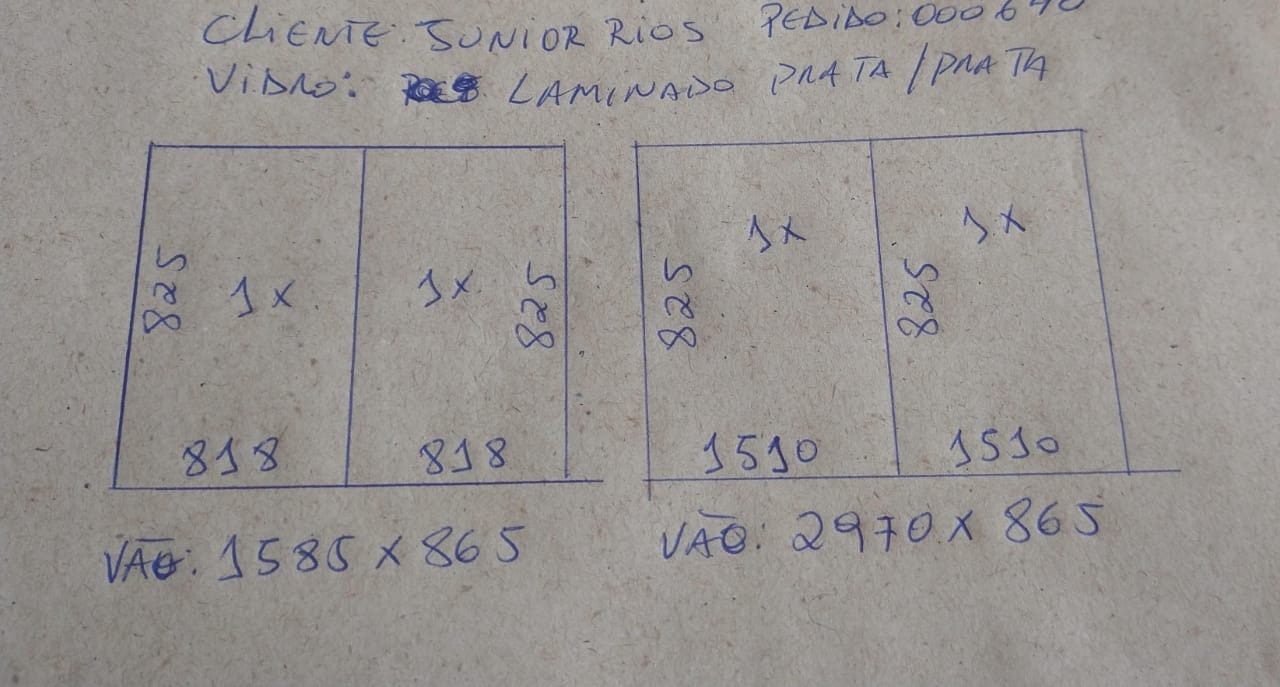 CLIENTE: JUNIOR RIOS PEDIDO: 000640
VIDRO: LAMINADO PRATA/PRATA
825 1x 1x 825
818 818
825 1x 825 1x
1510 1510
VÃO: 1585 x 865
VÃO: 2970 x 865